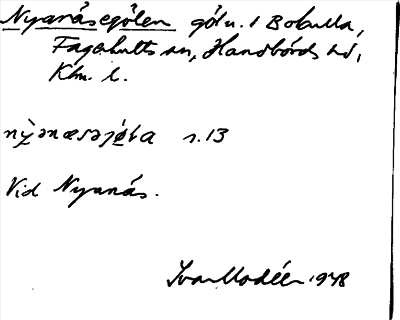 Nyanäsegölen göl n. I Bokulla,
Fagerhults sn, Handbörds hd,
Klm. l.
s. 13
Vid Nyanäs.
Ivar Modéer 1948